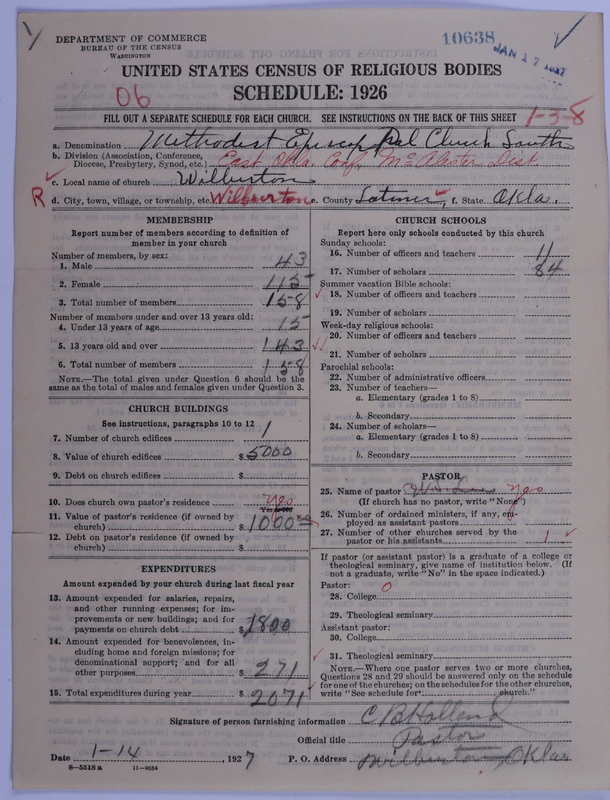 DEPARTMENT OF COMMERCE
BUREAU OF THE CENSUS
WASHINGTON
10638
JAN 17 1927
UNITED STATES CENSUS OF RELIGIOUS BODIES
SCHEDULE: 1926
06
FILL OUT A SEPARATE SCHEDULE FOR EACH CHURCH. SEE INSTRUCTIONS ON THE BACK OF THIS SHEET
1-5-8
a. Denomination Methodist Episcopal Church South
b. Division (Association, Conference, Diocese, Presbytery, Synod, etc.) East Okla. Conf. McAlester Dist.
c. Local name of church Wilburton
R d. City, town, village, or township, etc. Wilburton e. County Latimer, f. State Okla.
MEMBERSHIP
Report number of members according to definition of
member in your church
Number of members, by sex:
1. Male 43
2. Female 115
3. Total number of members 158
Number of members under and over 13 years old:
4. Under 13 years of age 15
5. 13 years old and over 143
6. Total number of members 158
NOTE.—The total given under Question 6 should be
same as the total of males and females given under Question 3.
CHURCH BUILDINGS
See instructions, paragraphs 10 to 12
7. Number of church edifices 1
8. Value of church edifices $5000
9. Debt on church edifices $
10. Does church own pastor's residence Yes
11. Value of pastor's residence (if owned by
church) $1000
12. Debt on pastor's residence (if owned by
church) $
EXPENDITURES
Amount expended by your church during last fiscal year
13. Amount expended for salaries, repairs,
and other running expenses; for im-
provements or new buildings; and for
payments on church debt $1800
14. Amount expended for benevolences, in-
cluding home and foreign missions; for
denominational support; and for all
other purposes $271
15. Total expenditures during year $2071
CHURCH SCHOOLS
Report here only schools conducted by this church
Sunday schools:
16. Number of officers and teachers 11
17. Number of scholars 84
Summer vacation Bible schools:
18. Number of officers and teachers
19. Number of scholars
Week-day religious schools:
20. Number of officers and teachers
21. Number of scholars
Parochial schools:
22. Number of administrative officers
23. Number of teachers—
a. Elementary (grades 1 to 8)
b. Secondary
24. Number of scholars—
a. Elementary (grades 1 to 8)
b. Secondary
PASTOR
25. Name of pastor Yes
(If church has no pastor, write "None")
26. Number of ordained ministers, if any, em-
ployed as assistant pastors
27. Number of other churches served by the
pastor or his assistants 1
If pastor (or assistant pastor) is a graduate of a college or
theological seminary, give name of institution below. (If
not a graduate, write "No" in the space indicated.)
Pastor: 0
28. College
29. Theological seminary
Assistant pastor:
30. College
31. Theological seminary
NOTE.—Where one pastor serves two or more churches,
Questions 28 and 29 should be answered only on the schedule
for one of the churches; on the schedules for the other churches,
write "See schedule for church."
Signature of person furnishing information C B Holland
Official title Pastor
Date 1-14, 1927 P. O. Address Wilburton Okla
8—5518 a 11—9054